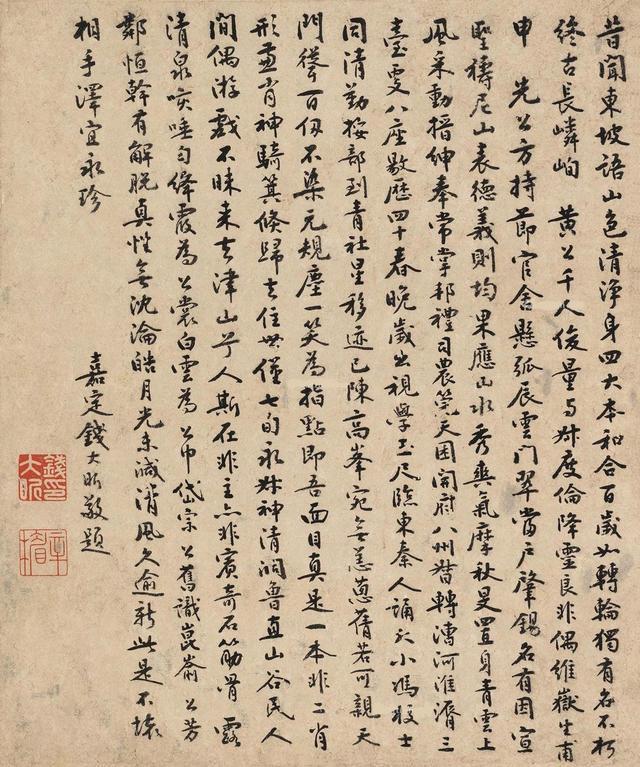 昔聞東坡語山色清淨身四大本和合百歲如轉輪獨有名不朽
終古長嶙峋 黃公千人俊量與叔度倫降靈良非偶維嶽生甫
申 先公方持節官舍懸弧辰雲門翠當戶肇錫名有因宣
聖禱尼山表德義則均果應山水秀爽氣摩秋旻置身青雲上
風采動搢紳奉常掌邦禮司農筦天囷開府八州督轉漕河淮濟三
臺更八座敭歷四十春晚歲出視學玉尺臨東秦人誦大小馮校士
同清勤按部到青社星移迹已陳高峯宛無恙蔥蒨若可親天
門聳百仞不染元規塵一笑為指點即吾面目真是一本非二肖
形兼肖神騎箕倏歸去住世僅七旬永叔神清洞魯直山谷民人
間偶游戲不昧來去津山乎人斯在非主亦非賓奇石筋骨露
清泉咳唾勻絳霞為公裳白雲為公巾岱宗公舊識崑崙公芳
鄰恒幹有解脫真性無沈淪皓月光未減清風久逾新此是不壞
相手澤宜永珍
嘉定錢大昕敬題
錢印大昕